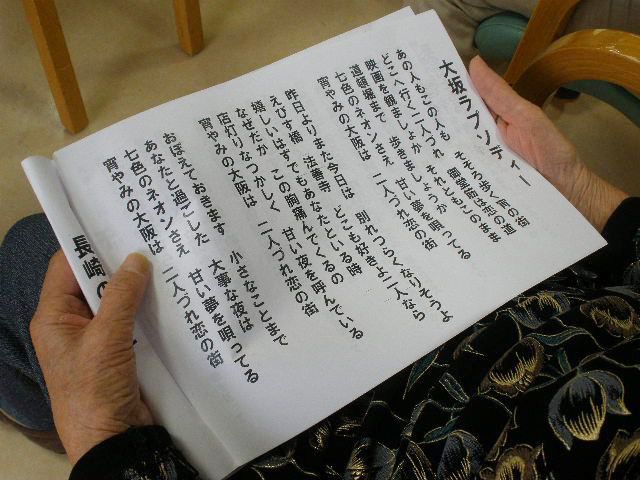 大坂ラプソディー
あの人もこの人も　そぞろ歩く宵の街
どこへ行く二人づれ　御堂筋は恋の道
映画を観ましょか　それともこのまま
道頓堀まで歩きましょうか
七色のネオンさえ　甘い夢を唄ってる
宵やみの大阪は　二人づれ恋の街
昨日よりまた今日は　別れつらくなりそうよ
えびす橋　法善寺　どこも好きよ二人なら
嬉しいはずでもあなたといる時
なぜだかこの胸痛んでくるの
店灯りなつかしく　甘い夜を呼んでいる
宵やみの大阪は　二人づれ恋の街
おぼえておきます　小さなことまで
あなたと過ごした　大事な夜は
七色のネオンさえ　甘い夢を唄ってる
宵やみの大阪は　二人づれ恋の街
長崎の